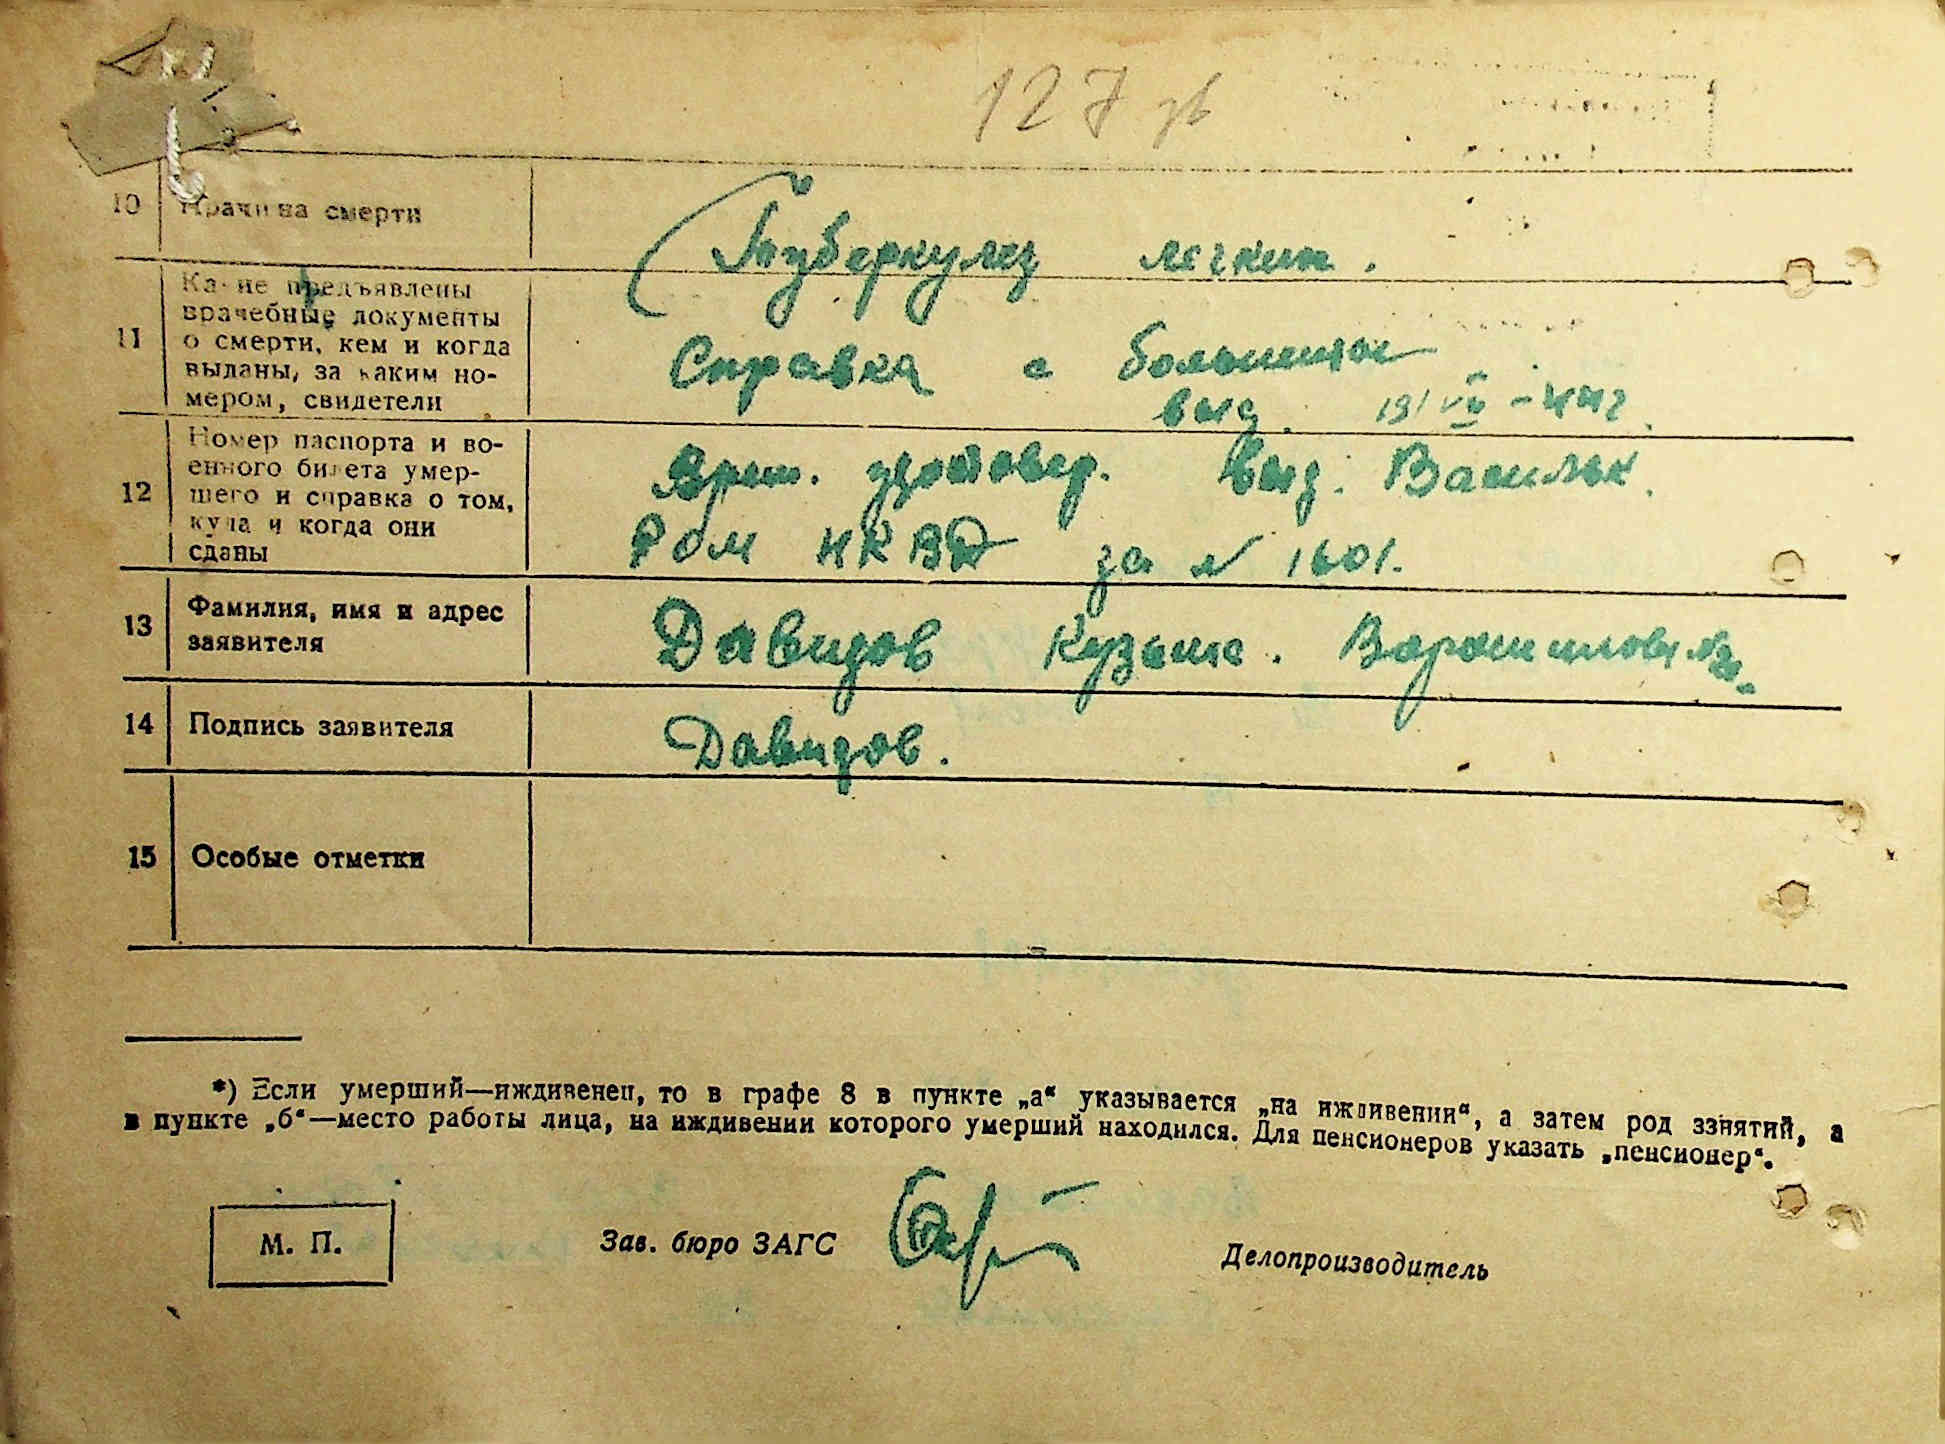 127 зв
10 Причина смерти
Туберкулез легких.
11 Какие предъявлены
врачебные документы
о смерти, кем и когда
выданы, за каким но-
мером, свидетели
Справка с больницы
выд. 19/VII-44г.
12 Номер паспорта и во-
енного билета умер-
шего и справка о том,
куда и когда они
сданы
Врем. удостовер. выд. Васильк.
РОМ НКВД за № 1601.
13 Фамилия, имя и адрес
заявителя
Давидов Кузьма. Ворошиловск
14 Подпись заявителя
Давидов.
15 Особые отметки
*) Если умерший—иждивенец, то в графе 8 в пункте „а“ указывается „на иждивении“, а затем род занятий, а
в пункте „б“—место работы лица, на иждивении которого умерший находился. Для пенсионеров указать „пенсионер“.
М. П.
Зав. бюро ЗАГС
Делопроизводитель